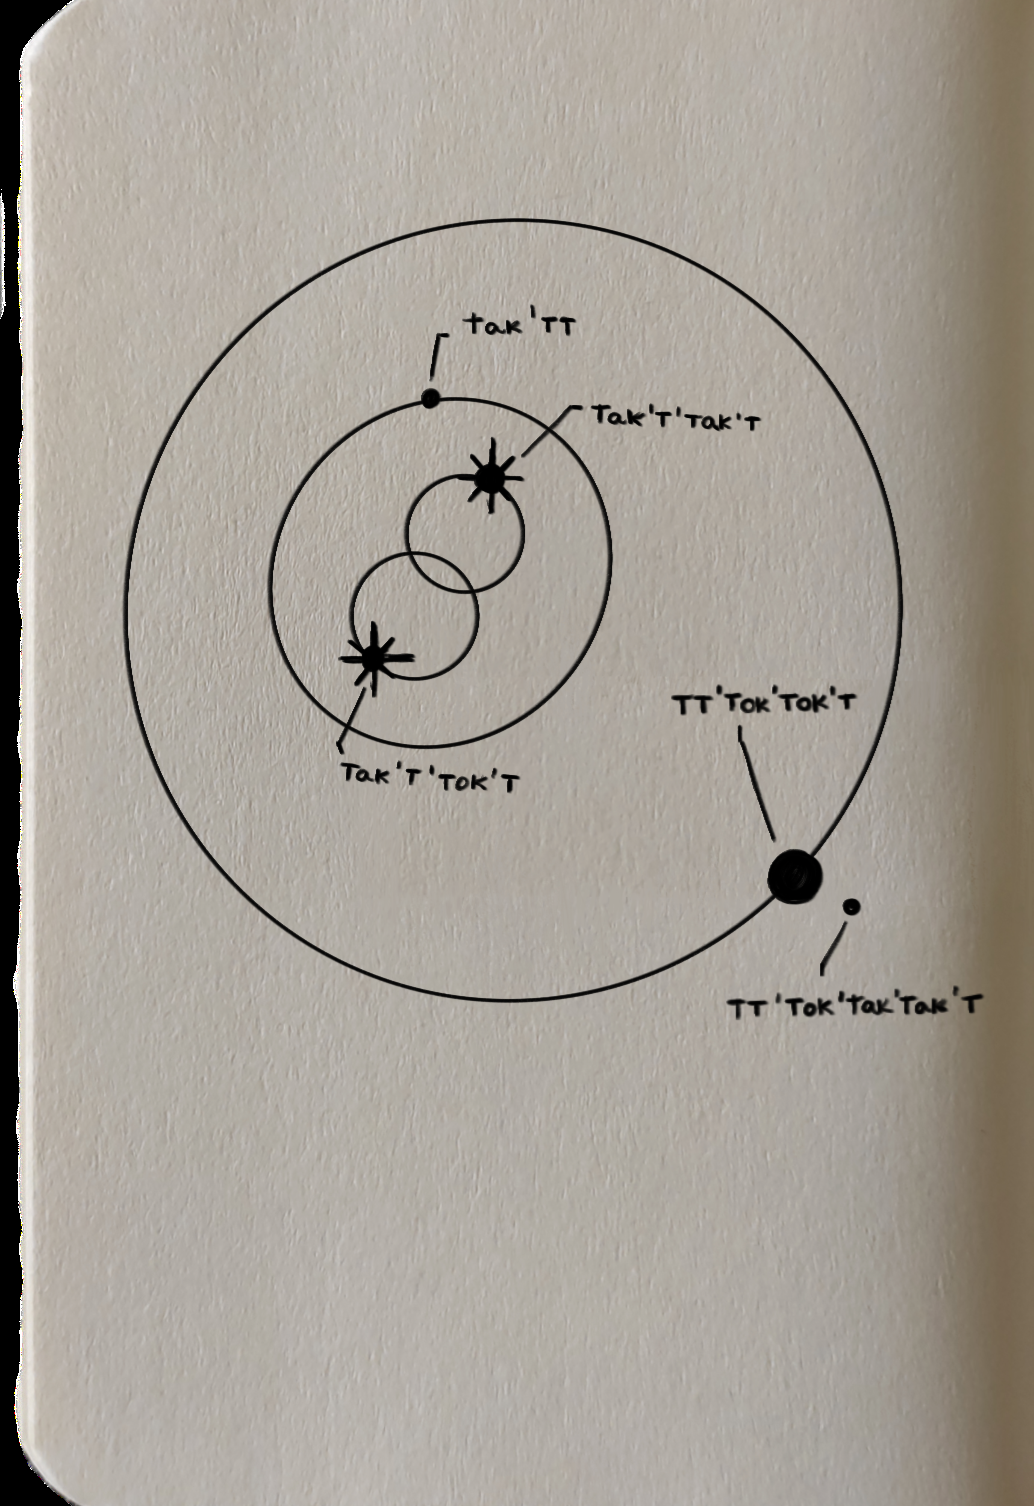 Tak'TT
Tak'T'Tak'T
TT'Tok'Tok'T
Tak'T'Tok'T
TT'Tok'Tak'Tak'T